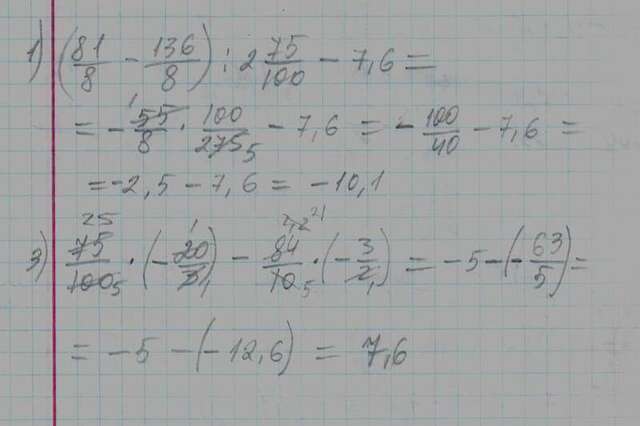 1) (81/8 − 136/8) : 2 75/100 − 7,6 =
= − 55/8 · 100/275 − 7,6 = − 100/40 − 7,6 =
= −2,5 − 7,6 = −10,1
3) 75/100 · (− 20/3) − 84/10 · (− 3/2) = −5 − (− 63/5) =
= −5 − (−12,6) = 7,6